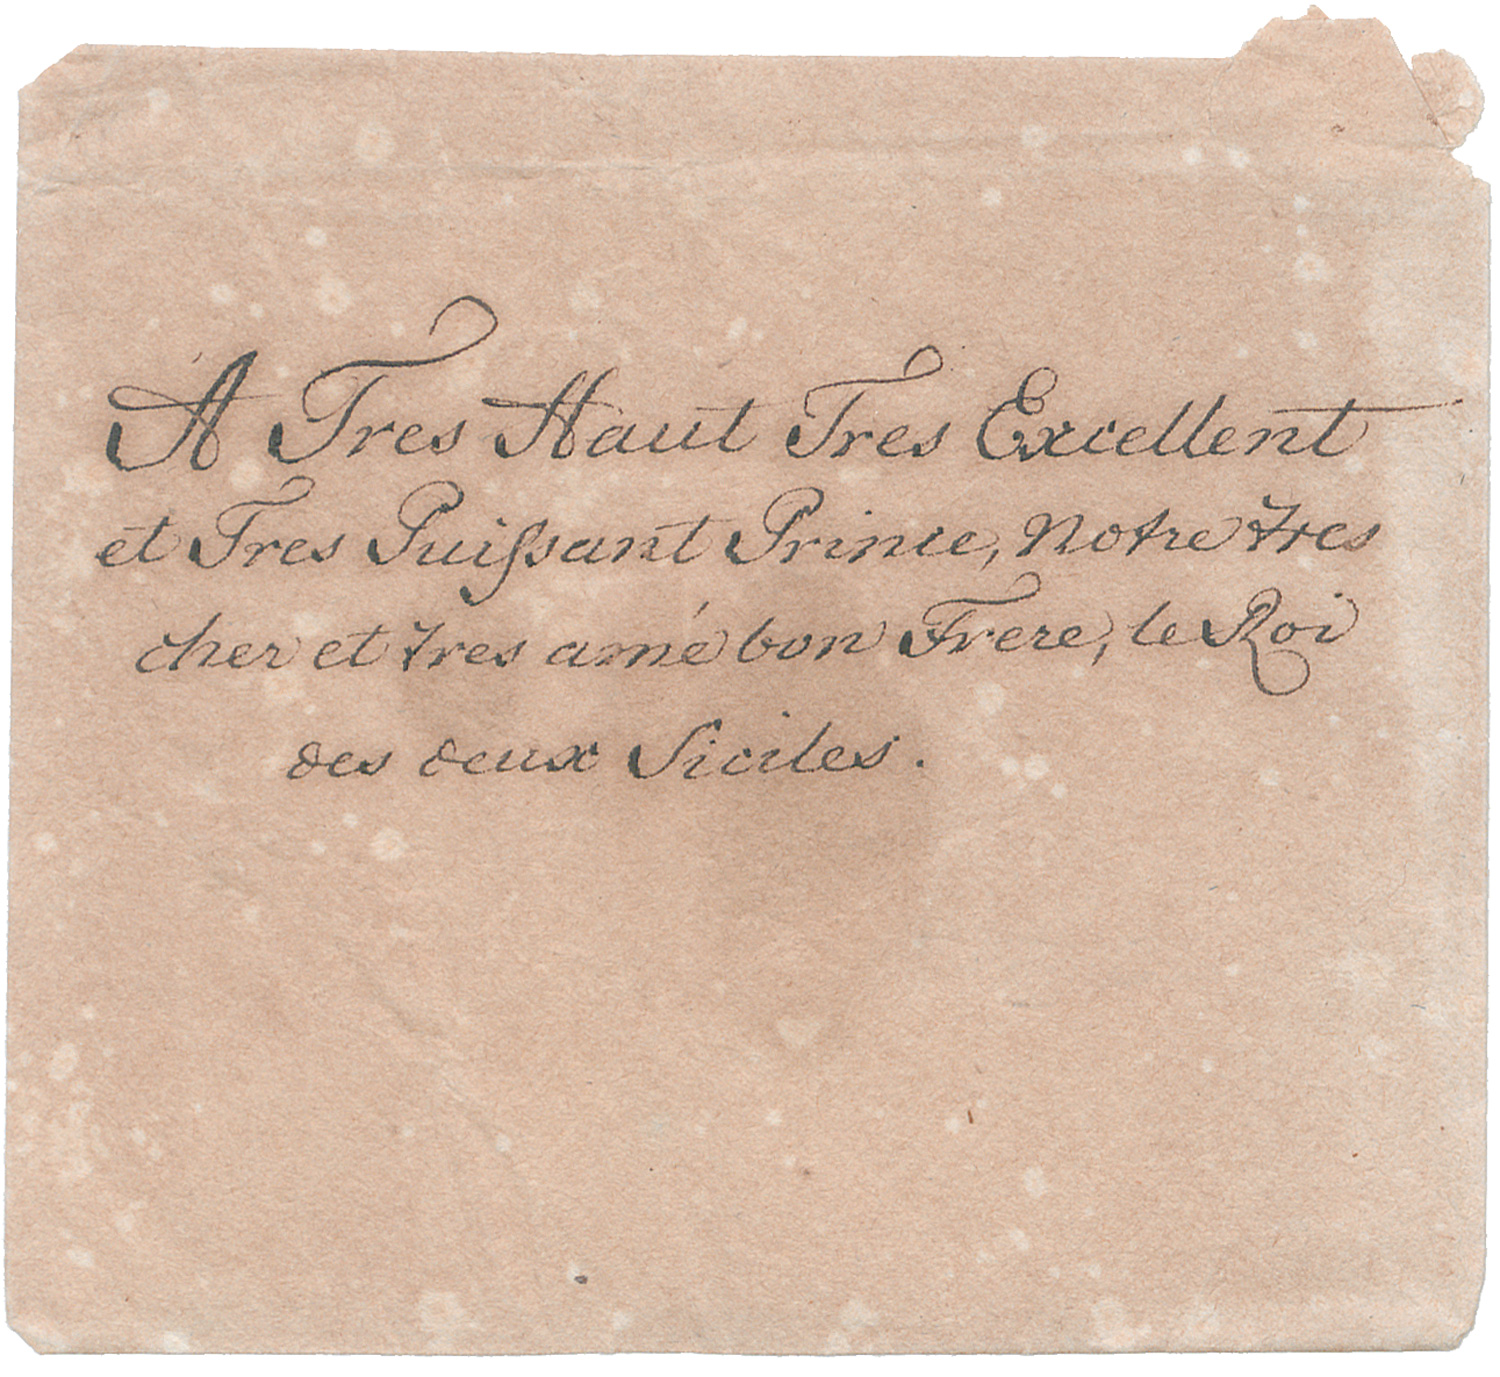 A Tres Haut Tres Excellent
et Tres Puiſsant Prince, Notre tres
cher et tres amé bon Frere, le Roi
des deux Siciles.